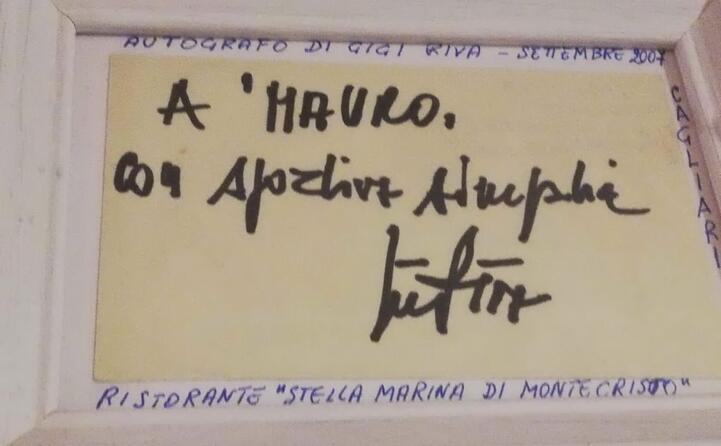 AUTOGRAFO DI GIGI RIVA - SETTEMBRE 2007
CAGLIARI
A MAURO.
con sportiva simpatia
RISTORANTE "STELLA MARINA DI MONTECRISTO"